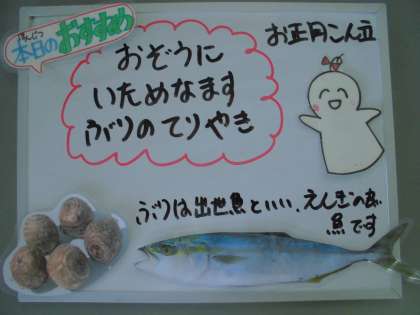 ほんじつ
本日のおすすめ
お正月こん立
おぞうに
いためなます
ぶりのてりやき
ぶりは出世魚といい、えんぎの良い
魚です